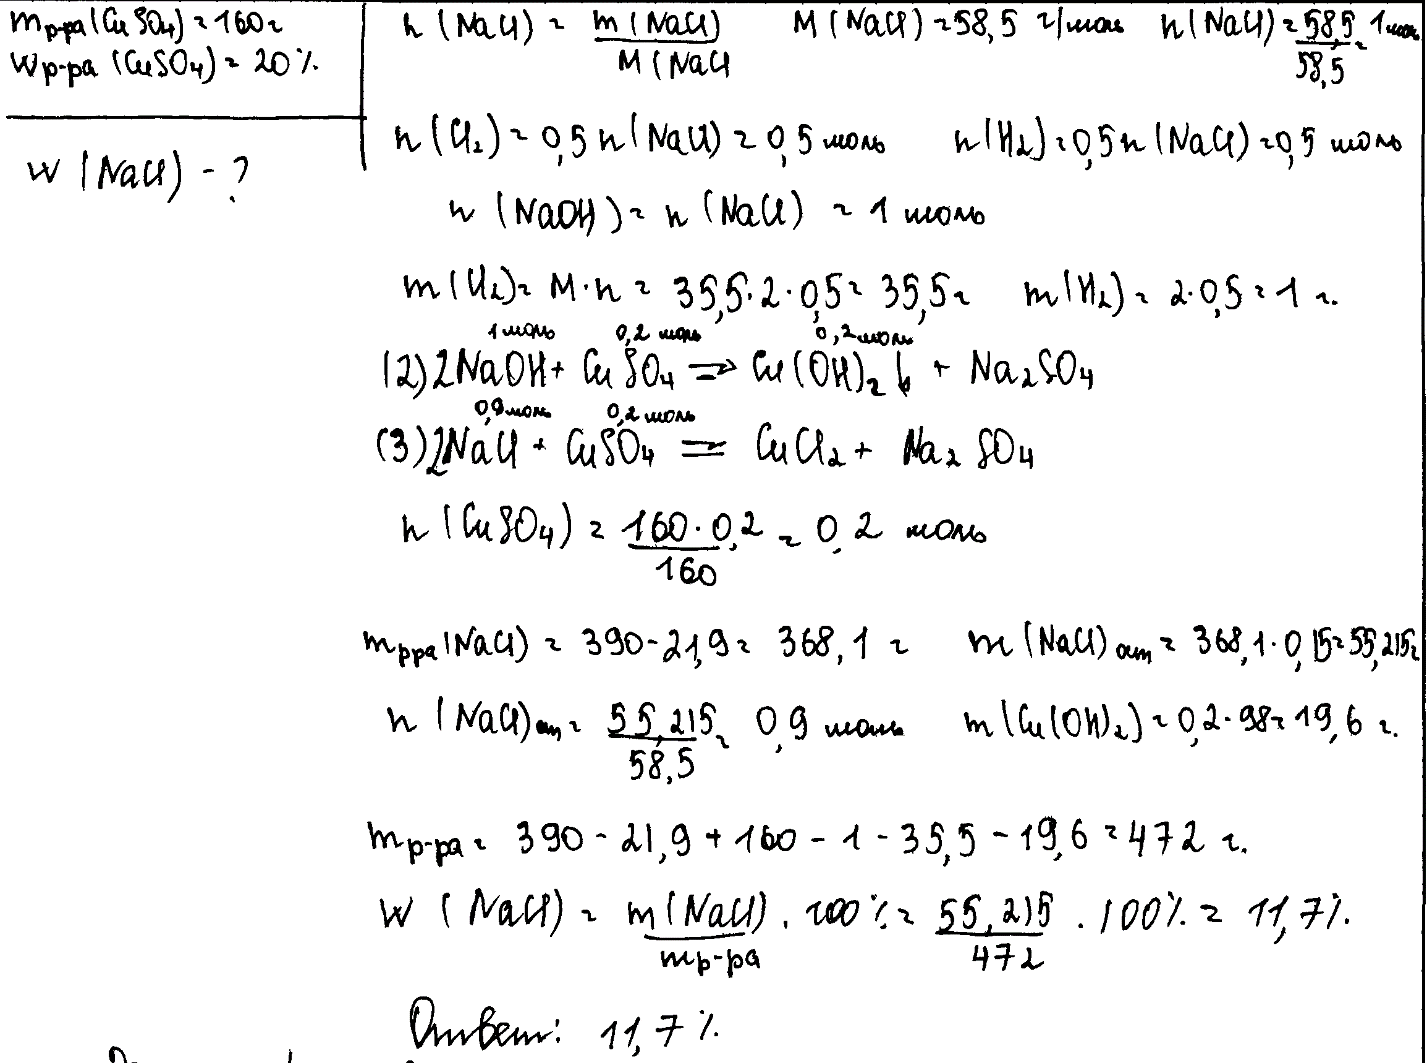 m р-ра (CuSO₄) = 160 г
W р-ра (CuSO₄) = 20 %.
w (NaCl) - ?
n (NaCl) = m (NaCl) / M (NaCl   M (NaCl) = 58,5 г/моль   n (NaCl) = 58,5 / 58,5 = 1 моль
n (Cl₂) = 0,5 n (NaCl) = 0,5 моль   n (H₂) = 0,5 n (NaCl) = 0,5 моль
n (NaOH) = n (NaCl) = 1 моль
m (Cl₂) = M · n = 35,5 · 2 · 0,5 = 35,5 г   m (H₂) = 2 · 0,5 = 1 г.
1 моль   0,2 моль   0,2 моль
(2) 2NaOH + CuSO₄ => Cu(OH)₂ ↓ + Na₂SO₄
0,9 моль   0,2 моль
(3) 2NaCl + CuSO₄ = CuCl₂ + Na₂SO₄
n (CuSO₄) = 160 · 0,2 / 160 = 0,2 моль
m р-ра (NaCl) = 390 - 21,9 = 368,1 г   m (NaCl) ост = 368,1 · 0,15 = 55,215 г
n (NaCl) ост = 55,215 / 58,5 = 0,9 моль   m (Cu(OH)₂) = 0,2 · 98 = 19,6 г.
m р-ра = 390 - 21,9 + 160 - 1 - 35,5 - 19,6 = 472 г.
W (NaCl) = m (NaCl) / m р-ра · 100 % = 55,215 / 472 · 100 % = 11,7 %.
Ответ: 11,7 %.